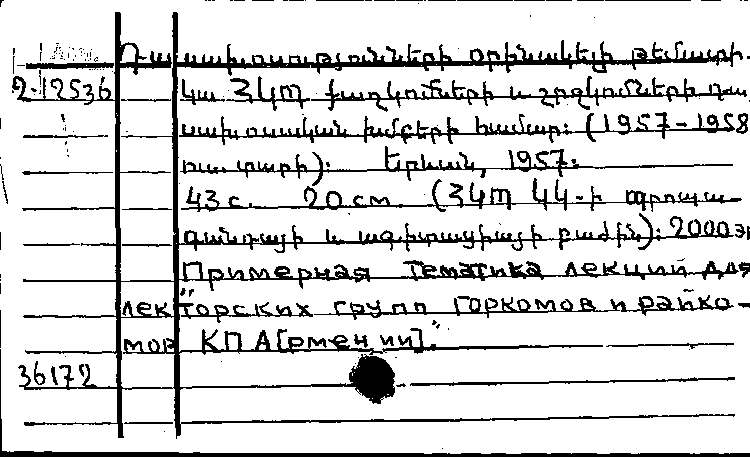 Арм. Դասախոսությունների օրինակելի թեմատի-
2-12536 կա ՀԿՊ քաղկոմների և շրջկոմների դա-
սախոսական խմբերի համար: (1957-1958
ուս. տարի): Երևան, 1957:
43 с. 20 см. (ՀԿՊ ԿԿ-ի պրոպա-
գանդայի և ագիտացիայի բաժին): 2000 э
Примерная тематика лекций для
лекторских групп горкомов и райко-
мов КП А[рмении]."
36172